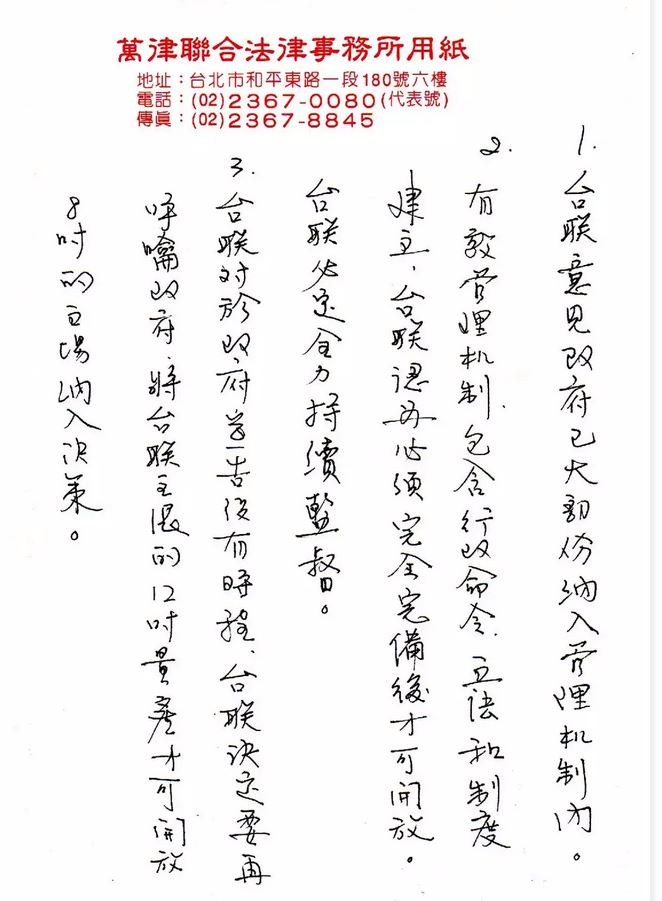 萬律聯合法律事務所用紙
地址：台北市和平東路一段180號六樓
電話：(02)2367-0080(代表號)
傳眞：(02)2367-8845
1. 台联意見政府已大部份納入管理机制內。
2. 有效管理机制、包含行政命令、立法和制度
建立，台联認為必須完全完備後才可開放。
台联必定全力持續監督。
3. 台联对於政府宣告没有時程、台联决定要再
呼籲政府將台联主張的12吋量產才可開放
8吋的立場納入决策。